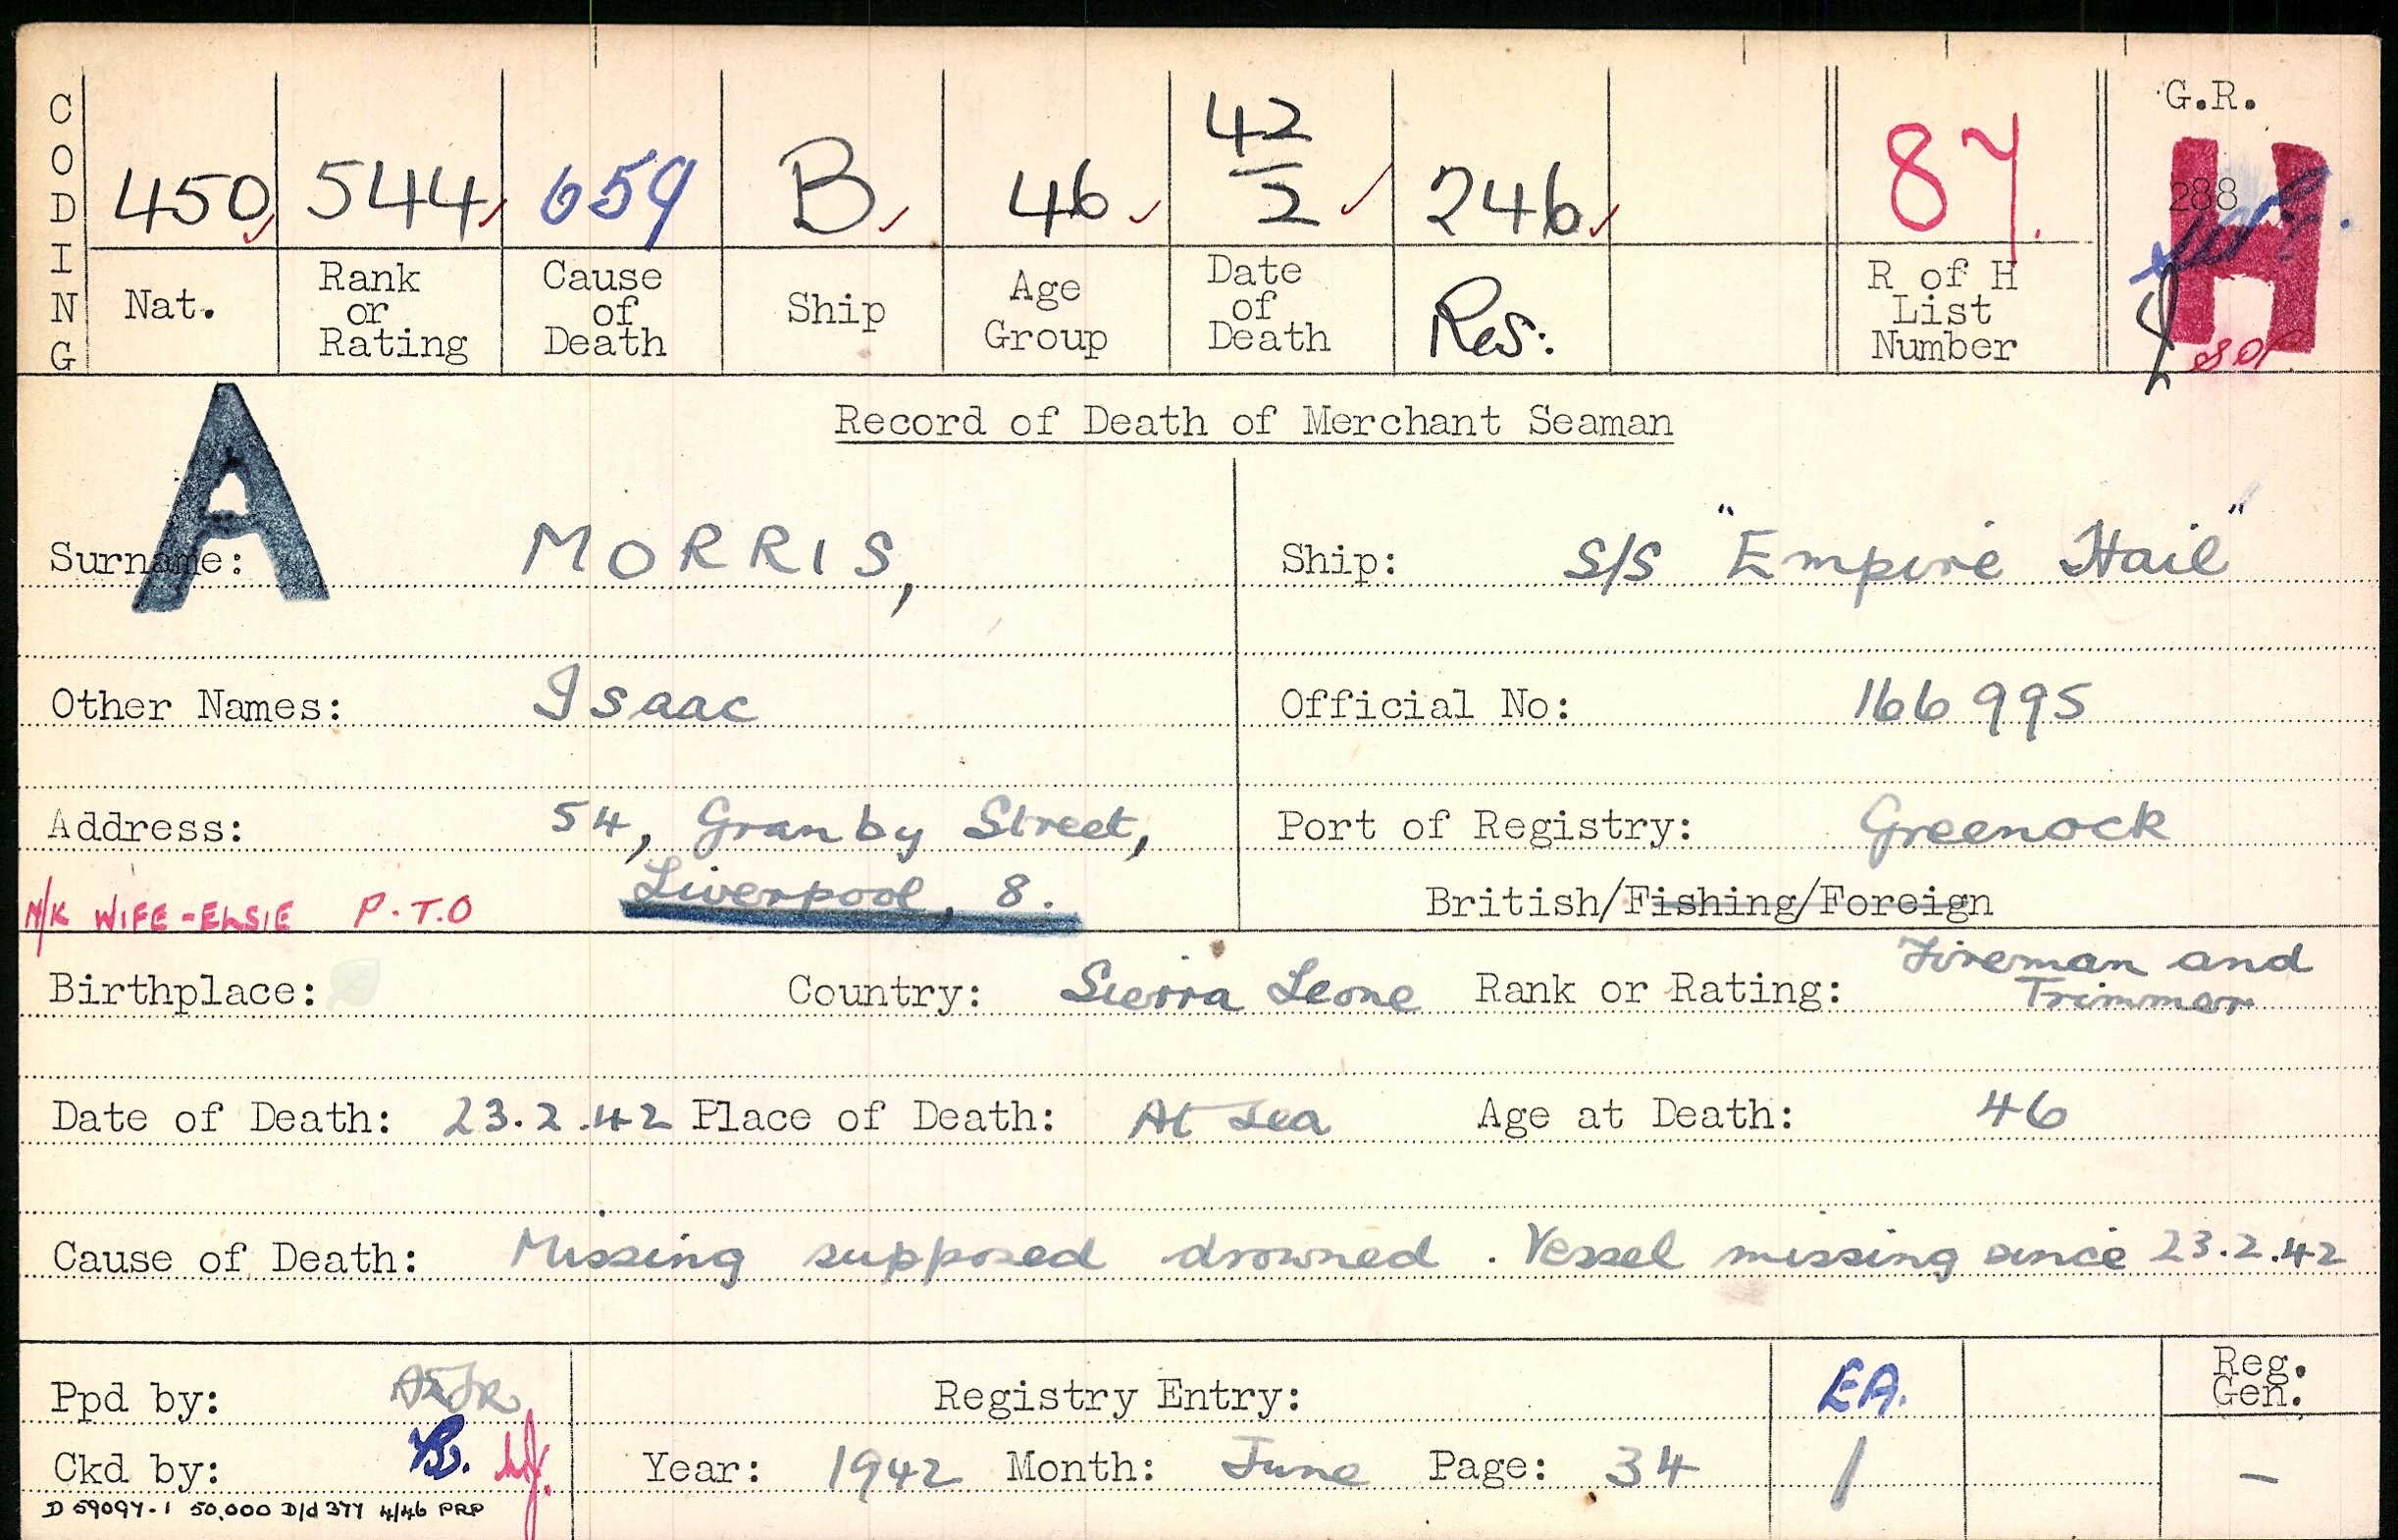 CODING
450 544 659 B 46 42/2 246 87 G.R.
288
H
Nat. Rank or Rating Cause of Death Ship Age Group Date of Death Res: R of H List Number
Record of Death of Merchant Seaman
A
Surname: MORRIS, Ship: S/S "Empire Hail"
Other Names: Isaac Official No: 166995
Address: 54, Granby Street, Port of Registry: Greenock
Liverpool, 8. British/Fishing/Foreign
N/K WIFE-ELSIE P.T.O
Birthplace: Country: Sierra Leone Rank or Rating: Fireman and
Trimmer
Date of Death: 23.2.42 Place of Death: At Sea Age at Death: 46
Cause of Death: Missing supposed drowned. Vessel missing since 23.2.42
Ppd by: Registry Entry: EA. Reg. Gen.
Ckd by: B. Year: 1942 Month: June Page: 34 / -
D 59097-1 50,000 D/d 377 4/46 PRP